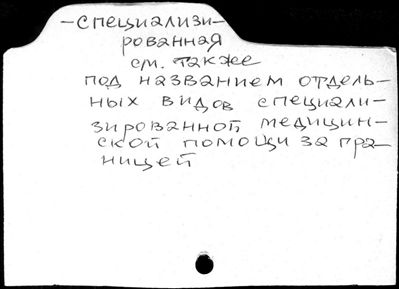 -специализи-
рованная
см. также
под названием отдель-
ных видов специали-
зированной медицин-
ской помощи за гра-
ницей